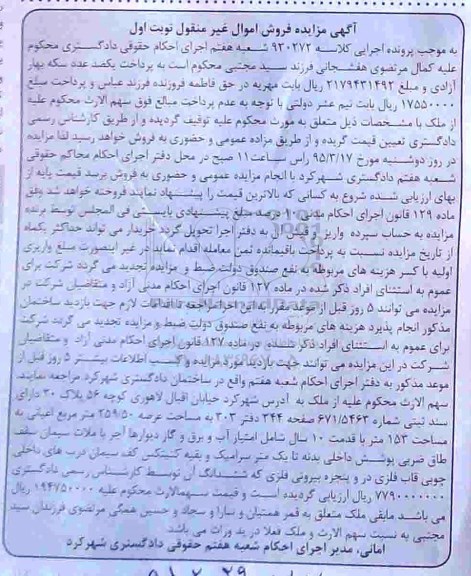 آگهی مزایده فروش اموال غیر منقول نوبت اول
به موجب پرونده اجرایی کلاسه ۹۳۰۲۷۲ شعبه هفتم اجرای احکام حقوقی دادگستری محکوم
علیه کمال مرتضوی هفشجانی فرزند سید مجتبی محکوم است به پرداخت یکصد عدد سکه بهار
آزادی و مبلغ ۲۱۷۹۴۳۱۴۹۲ ریال بابت مهریه در حق فاطمه فروزنده فرزند عباس و پرداخت مبلغ
۱۷۵۵۰۰۰۰ ریال بابت نیم عشر دولتی با توجه به عدم پرداخت مبالغ فوق سهم الارث محکوم علیه
از ملک با مشخصات ذیل متعلق به مورث محکوم علیه توقیف گردیده و از طریق کارشناس رسمی
دادگستری تعیین قیمت گریده و از طریق مزاده عمومی و حضوری به فروش خواهد رسید لذا مزایده
در روز دوشنبه مورخ ۹۵/۳/۱۷ راس ساعت ۱۱ صبح در محل دفتر اجرای احکام محاکم حقوقی
شعبه هفتم دادگستری شهرکرد با انجام مزایده عمومی و حضوری به فروش برسد قیمت پایه از
بهای ارزیابی شده شروع به کسانی که بالاترین قیمت را پیشنهاد نمایند فروخته خواهد شد وفق
ماده ۱۲۹ قانون اجرای احکام مدنی ۱۰ درصد مبلغ پیشنهادی بایستی فی المجلس توسط برنده
مزایده به حساب سپرده واریز و قبض آن به دفتر اجرا تحویل گردد خریدار می تواند حداکثر یکماه
از تاریخ مزایده نسبت به پرداخت باقیمانده ثمن معامله اقدام نماید در غیر اینصورت مبلغ واریزی
اولیه با کسر هزینه های مربوطه به نفع صندوق دولت ضبط و مزایده تجدید می گردد شرکت برای
عموم به استثنای افراد ذکر شده در ماده ۱۲۷ قانون اجرای احکام مدنی آزاد و متقاضیان شرکت در
مزایده می توانند ۵ روز قبل از موعد مقرر به این اجرا مراجعه تا اقدامات لازم جهت بازدید ساختمان
مذکور انجام پذیرد هزینه های مربوطه به نفع صندوق دولت ضبط و مزایده تجدید می گردد شرکت
برای عموم به استثنای افراد ذکر شده در ماده ۱۲۷ قانون اجرای احکام مدنی آزاد و متقاضیان
شرکت در این مزایده می توانند جهت بازدید مورد مزایده و کسب اطلاعات بیشتر ۵ روز قبل از
موعد مذکور به دفتر اجرای احکام شعبه هفتم واقع در ساختمان دادگستری شهرکرد مراجعه نمایند.
سهم الارث محکوم علیه از ملک به آدرس شهرکرد خیابان اقبال لاهوری کوچه ۵۶ پلاک ۳۰ دارای
سند ثبتی شماره ۶۷۱/۵۴۶۳ صفحه ۳۴۴ دفتر ۳۰۳ به مساحت عرصه ۲۵۹/۵۰ متر مربع اعیانی به
مساحت ۱۵۳ متر با قدمت ۱۰ سال شامل امتیاز آب و برق و گاز دیوارها آجر با ملات سیمان سقف
طاق ضربی پوشش داخلی بدنه تا یک متر سرامیک و بقیه کنیتکس کف سیمان درب های داخلی
چوبی قاب فلزی در و پنجره بیرونی فلزی که ششدانگ آن توسط کارشناس رسمی دادگستری
۷۷۹۰۰۰۰۰۰۰ ریال ارزیابی گردیده است و قیمت سهم‌الارث محکوم علیه ۱۹۴۷۵۰۰۰۰ ریال
می باشد مابقی ملک متعلق به قمر همتیان و سارا و سجاد و حسین همگی مرتضوی فرزندان سید
مجتبی به نسبت سهم الارث و ملک فعلا در ید وراث می باشد.
امانی، مدیر اجرای احکام شعبه هفتم حقوقی دادگستری شهرکرد